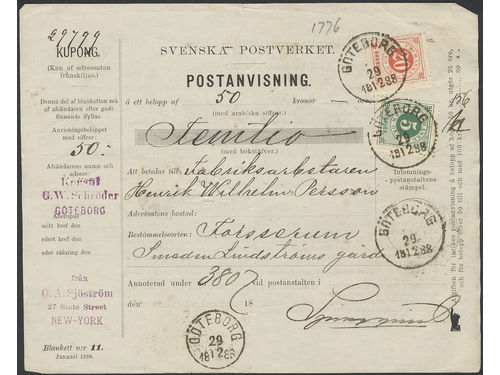 29799
1776
KUPONG.
(Kan af adressaten
frånskiljas.)
Denna del af blanketten må
af afsändaren efter godt
finnande ifyllas.
Anvisningsbeloppet
med siffror:
50.-
Afsändarens namn och
adress:
Kgrant
G.W. Schröder
GÖTEBORG
Afbetalas
mitt bref den
edert bref den
eder räkning den
från
C. A. Sjöström
27 State Street
NEW-YORK
Blankett n:r 11.
Januari 1888.
SVENSKA POSTVERKET.
POSTANVISNING.
å ett belopp af 50 kronor öre
(med arabiska siffror)
Femtio
(med bokstäfver).
Att betalas till Fabriksarbetaren
Henrik Wilhelm Persson
Adressatens bostad:
Bestämmelseorten: Forsserum
Smeden Lindströms gård
Annoterad under 3807 vid postanstalten i
den 18
Inlemnings-
postanstaltens
stämpel.
20
5
GÖTEBORG
29
1812.88
GÖTEBORG
29
1812.88
GÖTEBORG
29
1812.88
GÖTEBORG
29
1812.88